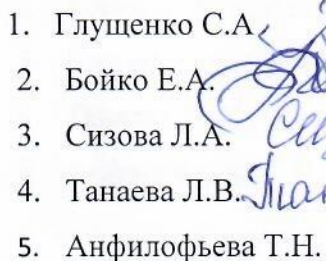 1. Глущенко С.А.
2. Бойко Е.А.
3. Сизова Л.А.
4. Танаева Л.В.
5. Анфилофьева Т.Н.